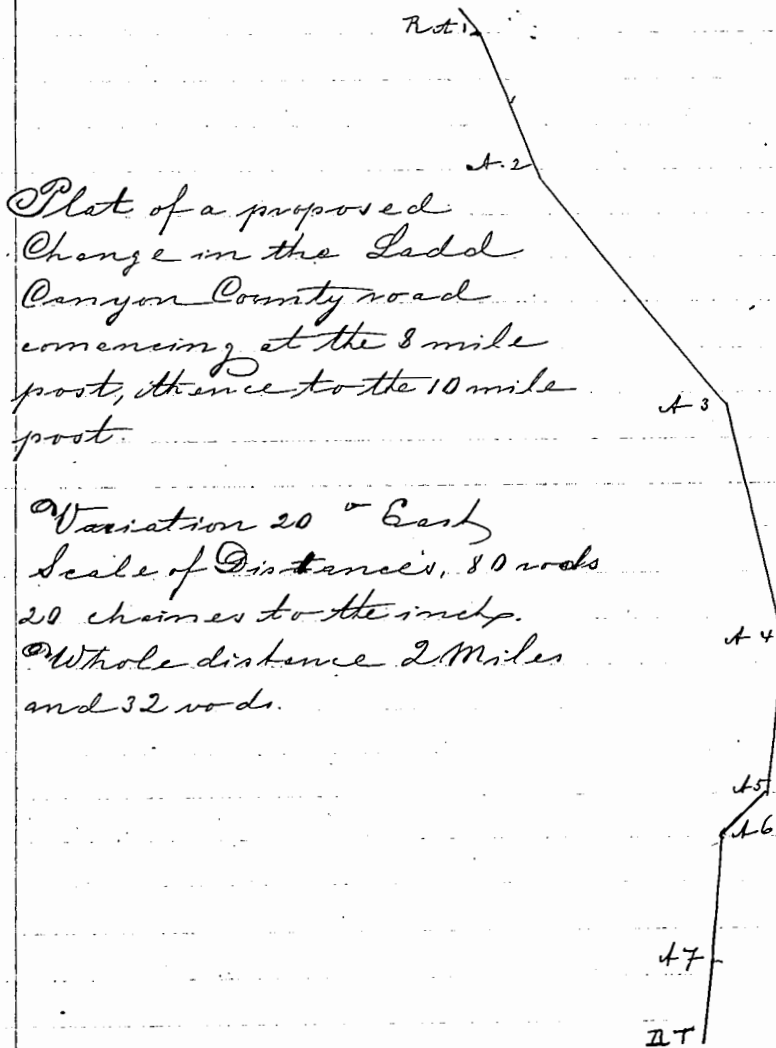 R A 1
A. 2
Plat of a proposed
Change in the Ladd
Canyon County road
comencing at the 8 mile
post, thence to the 10 mile
post.
A 3
Variation 20 ° East
Scale of Distances, 80 rods
20 chaines to the inch.
A 4
Whole distance 2 Miles
and 32 rods.
A 5
A 6
A 7